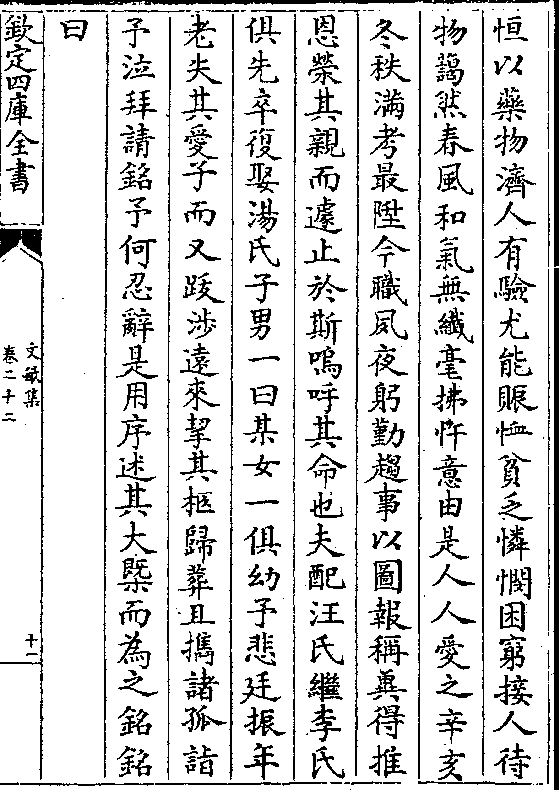 恒以藥物濟人有驗尤能賑恤貧乏憐憫困窮接人待
物藹然春風和氣無纖毫拂忤意由是人人愛之辛亥
冬秩滿考最陞今職夙夜躬勤趨事以圖報稱兾得推
恩榮其親而遽止於斯嗚呼其命也夫配汪氏繼李氏
俱先卒復娶湯氏子男一曰某女一俱幼予悲廷振年
老失其愛子而又跋涉遠來挈其柩歸葬且攜諸孤詣
予泣拜請銘予何忍辭是用序述其大槩而為之銘銘
曰
欽定四庫全書
文敏集
卷二十二
十一